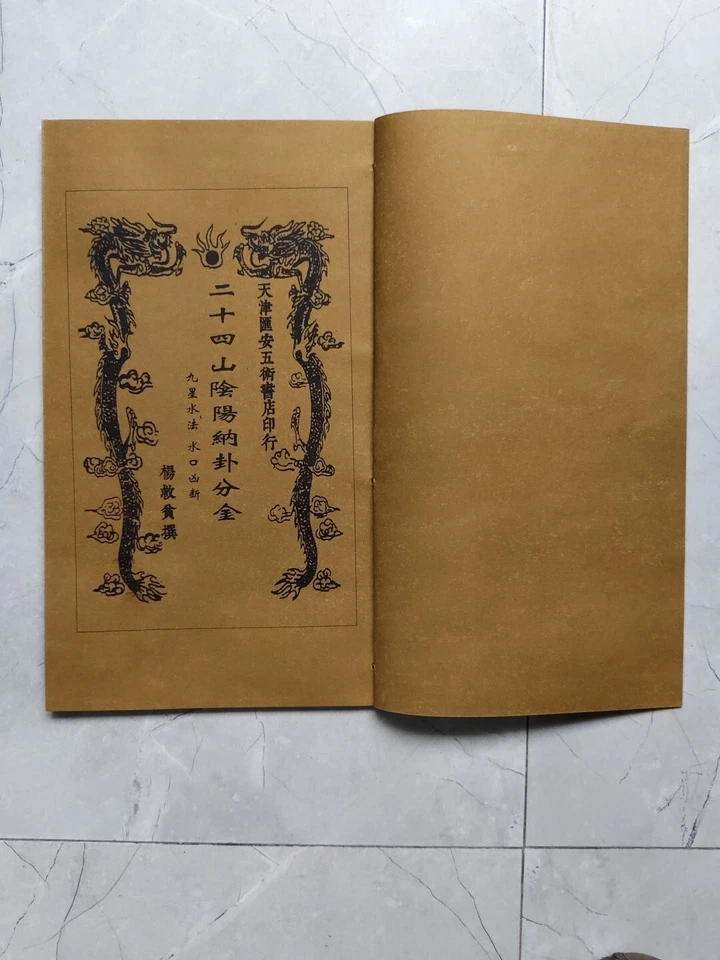 天津匯安五術書店印行
二十四山陰陽納卦分金
九星水法 水口凶斷
楊救貧撰